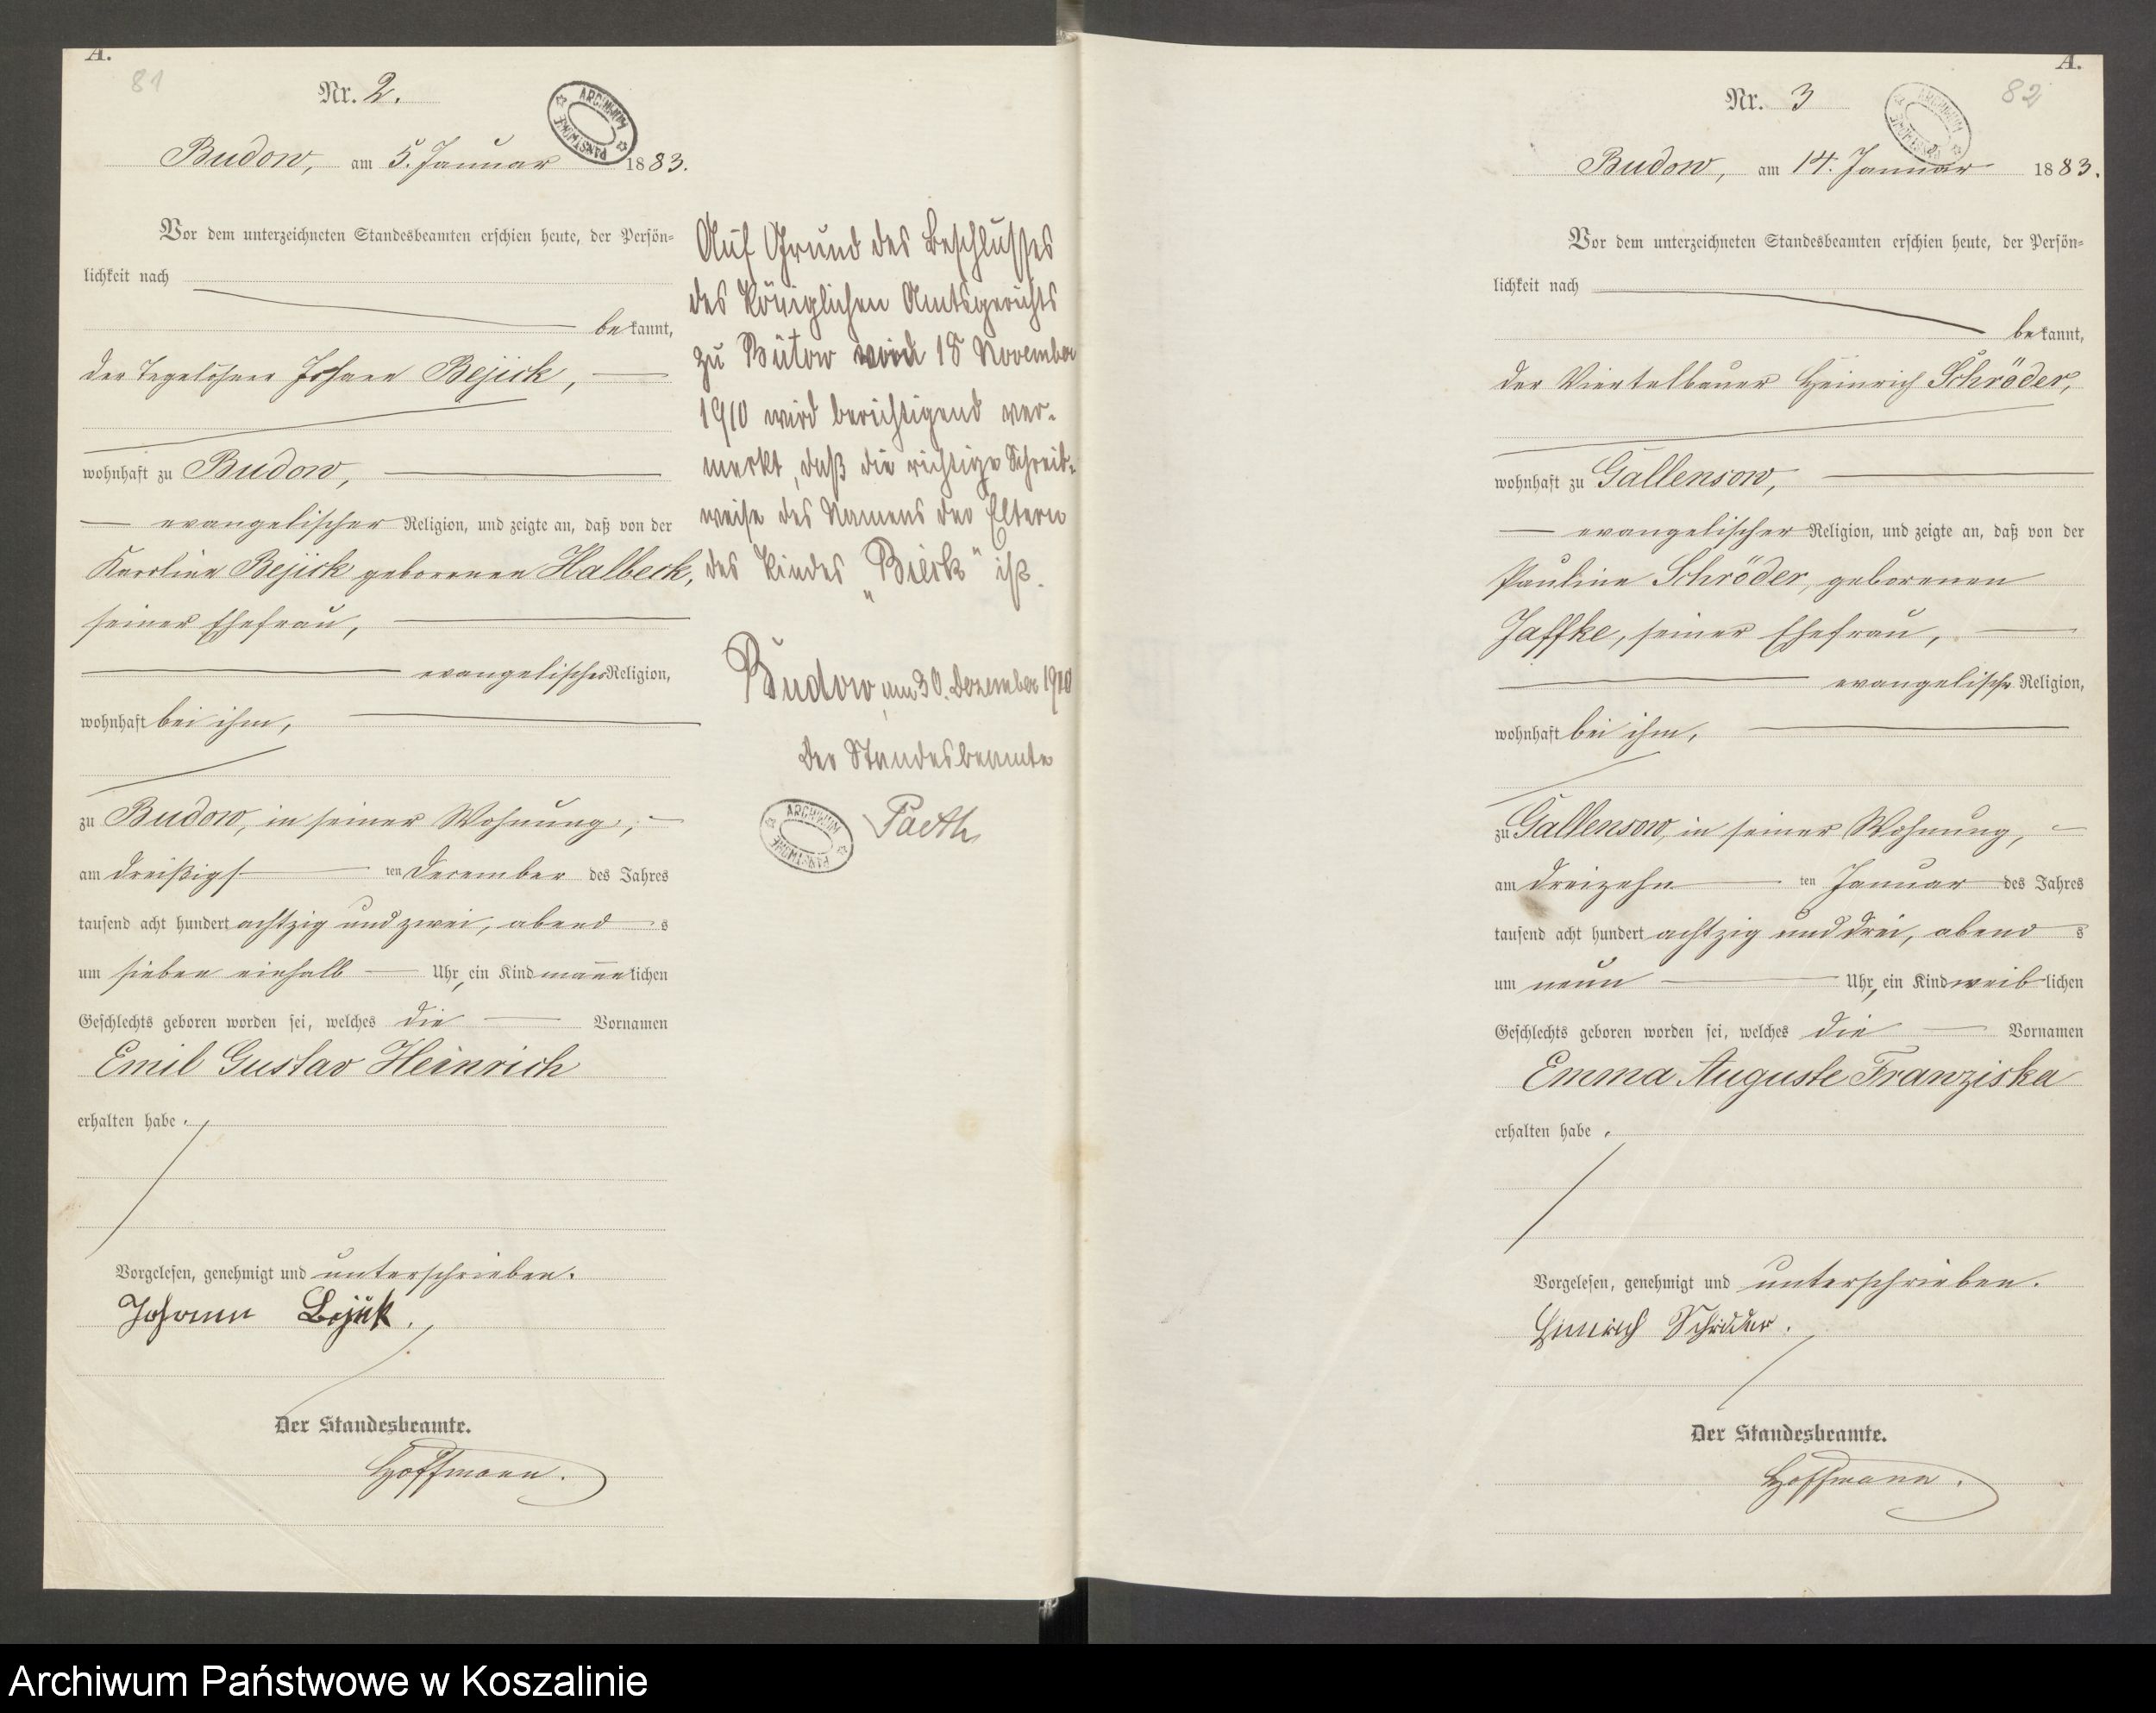 A.
81
Nr. 2.
ARCHIWUM PAŃSTWOWE
Budow, am 5. Januar 1883.
Vor dem unterzeichneten Standesbeamten erschien heute, der Persön=
lichkeit nach
bekannt,
der Tagelöhner Johann Bejick,
wohnhaft zu Budow,
evangelischer Religion, und zeigte an, daß von der
Karoline Bejick geborenen Halbeck,
seiner Ehefrau,
evangelischer Religion,
wohnhaft bei ihm,
zu Budow, in seiner Wohnung,
am dreißigsten December des Jahres
tausend acht hundert achtzig und zwei, abends
um sieben einhalb Uhr, ein Kind männlichen
Geschlechts geboren worden sei, welches die Vornamen
Emil Gustav Heinrich
erhalten habe.
Vorgelesen, genehmigt und unterschrieben.
Johann Bejick.
Der Standesbeamte.
Hoffmann.
Auf Grund des Beschlusses
des Königlichen Amtsgerichts
zu Bütow 18 November
1910 wird berichtigend ver-
merkt, daß die richtige Schreib-
weise des Namens der Eltern
des Kindes „Bieik" ist.
Budow am 30. Dezember 1910
Der Standesbeamte
Paeth
ARCHIWUM PAŃSTWOWE
A.
82
Nr. 3
ARCHIWUM PAŃSTWOWE
Budow, am 14. Januar 1883.
Vor dem unterzeichneten Standesbeamten erschien heute, der Persön=
lichkeit nach
bekannt,
der Viertelbauer Heinrich Schröder,
wohnhaft zu Gallensow,
evangelischer Religion, und zeigte an, daß von der
Pauline Schröder, geborenen
Jaffke, seiner Ehefrau,
evangelischer Religion,
wohnhaft bei ihm,
zu Gallensow, in seiner Wohnung,
am dreizehnten Januar des Jahres
tausend acht hundert achtzig und drei, abends
um neun Uhr, ein Kind weiblichen
Geschlechts geboren worden sei, welches die Vornamen
Emma Auguste Franziska
erhalten habe.
Vorgelesen, genehmigt und unterschrieben.
Heinrich Schröder.
Der Standesbeamte.
Hoffmann.
Archiwum Państwowe w Koszalinie